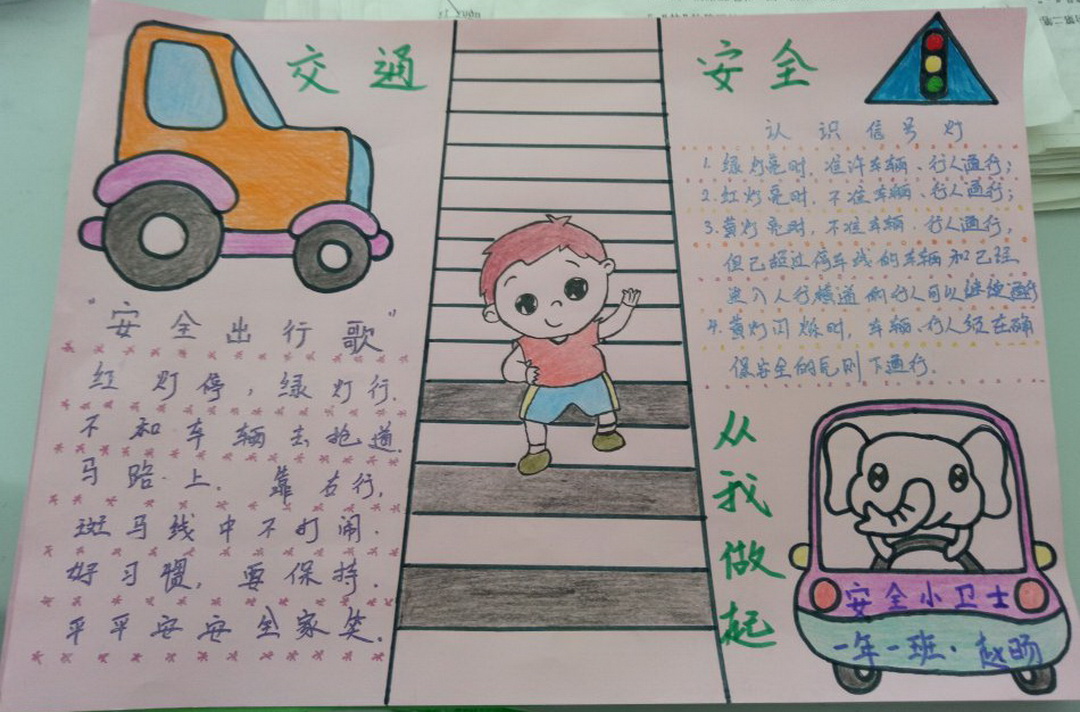 交通
安全
"安全出行歌"
红灯停,绿灯行.
不和车辆去抢道.
马路上.靠右行,
斑马线中不打闹.
好习惯,要保持.
平平安安全家笑.
认识信号灯
1.绿灯亮时,准许车辆、行人通行;
2.红灯亮时,不准车辆、行人通行;
3.黄灯亮时,不准车辆、行人通行,
但已超过停车线的车辆和已经
进入人行横道的行人可以继续通行
4.黄灯闪烁时,车辆、行人须在确
保安全的原则下通行.
从我做起
安全小卫士
一年一班·赵旸